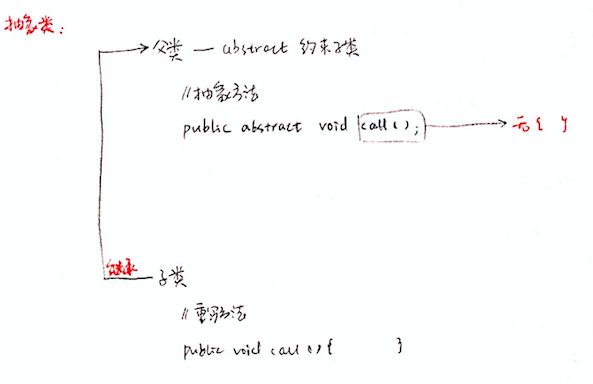 抽象类：
父类 — abstract 约束子类
//抽象方法
public abstract void call(); 无{ }
继承 子类
//重写方法
public void call(){ }